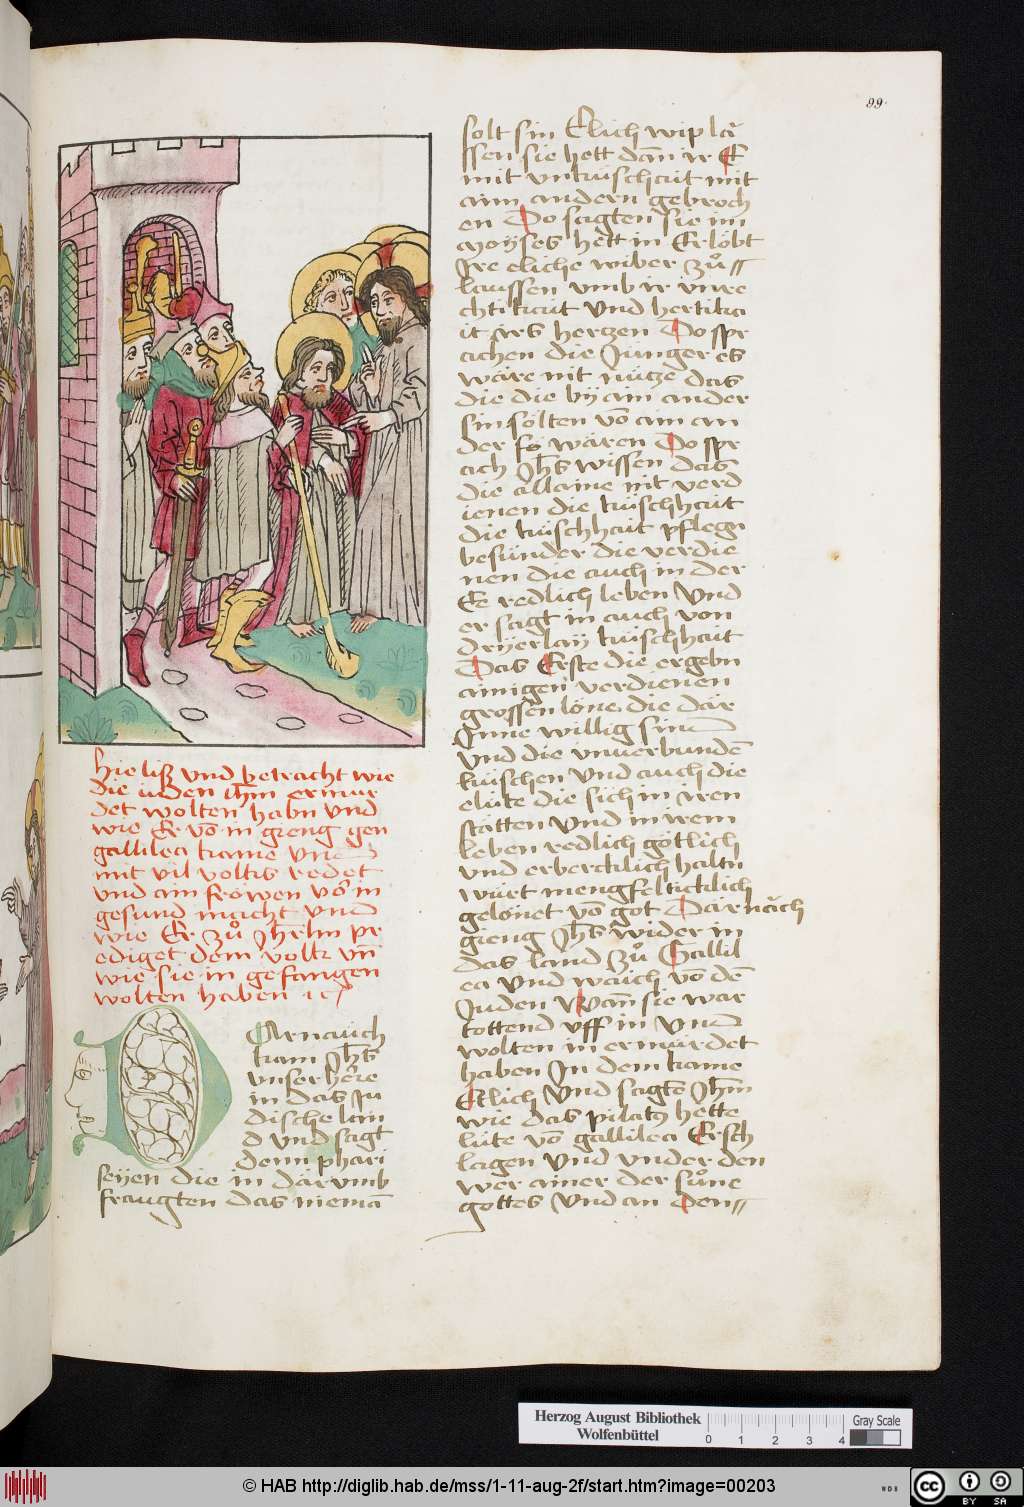 99
Hie liß vnd betracht wie
die iuden ihm ermür
det wolten habn vnd
wie Er vō in gieng gen
gallilea kame vnd
mit vil volks redet
vnd ain frowen vō in
gesund macht vnd
wie Er zů Jhrlm pr
ediget dem volk vn̄
wie sie in gefangen
wolten haben ꝛc
DArnauch
kam Jhs
vnser here
in das Ju
dische lan
d vnd sagt
denn phari
seyen die in dar vmb
fraugten das niemā
solt sin Elich wip la
ssen sie hett dan̄ ir E
mit vnküschait mit
aim andern gebroch
en Do sagten sie im
moyses hett in Erlöbt
Jre eliche wiber zů
laussen vmb ir vnre
chtikait vnd hertika
it irs hertzen Do spr
achen die Junger es
wäre nit nütze das
die die by aim ander
sin sölten vō aim an
der so wären Do spr
ach Jhs wissen das
die allaine nit verd
ienen die küschhait
die küschhait pflege
besünder die verdie
nen die auch in der
Ee redlich leben vnd
er sagt in auch von
dryerlay küschhait
Das Erste die ergebn
ainigen verdienen
grossen löne die där
Jnne willig sind
vnd die vnuerbundē
küschen vnd auch die
elüte die sich in iren
stätten vnd in irem
leben redlich götlich
vnd erberclich haltn
würt mengfelticklich
gelönet vō got Darnäch
gieng Jhs wider in
das land zů Gallil
ea vnd wauch vō dē
Juden wan̄ sie war
tottend vff in vnd
wolten in ermürdet
haben Jn dem kame
Etlich vnd sagtē Jhm
wie das pilatus hette
lüte vō gallilea Ersch
lagen vnd vnder den
wer ainer der süne
gottes vnd an den
Herzog August Bibliothek
Wolfenbüttel
0 1 2 3 4
Gray Scale
© HAB http://diglib.hab.de/mss/1-11-aug-2f/start.htm?image=00203
WDB
cc BY SA